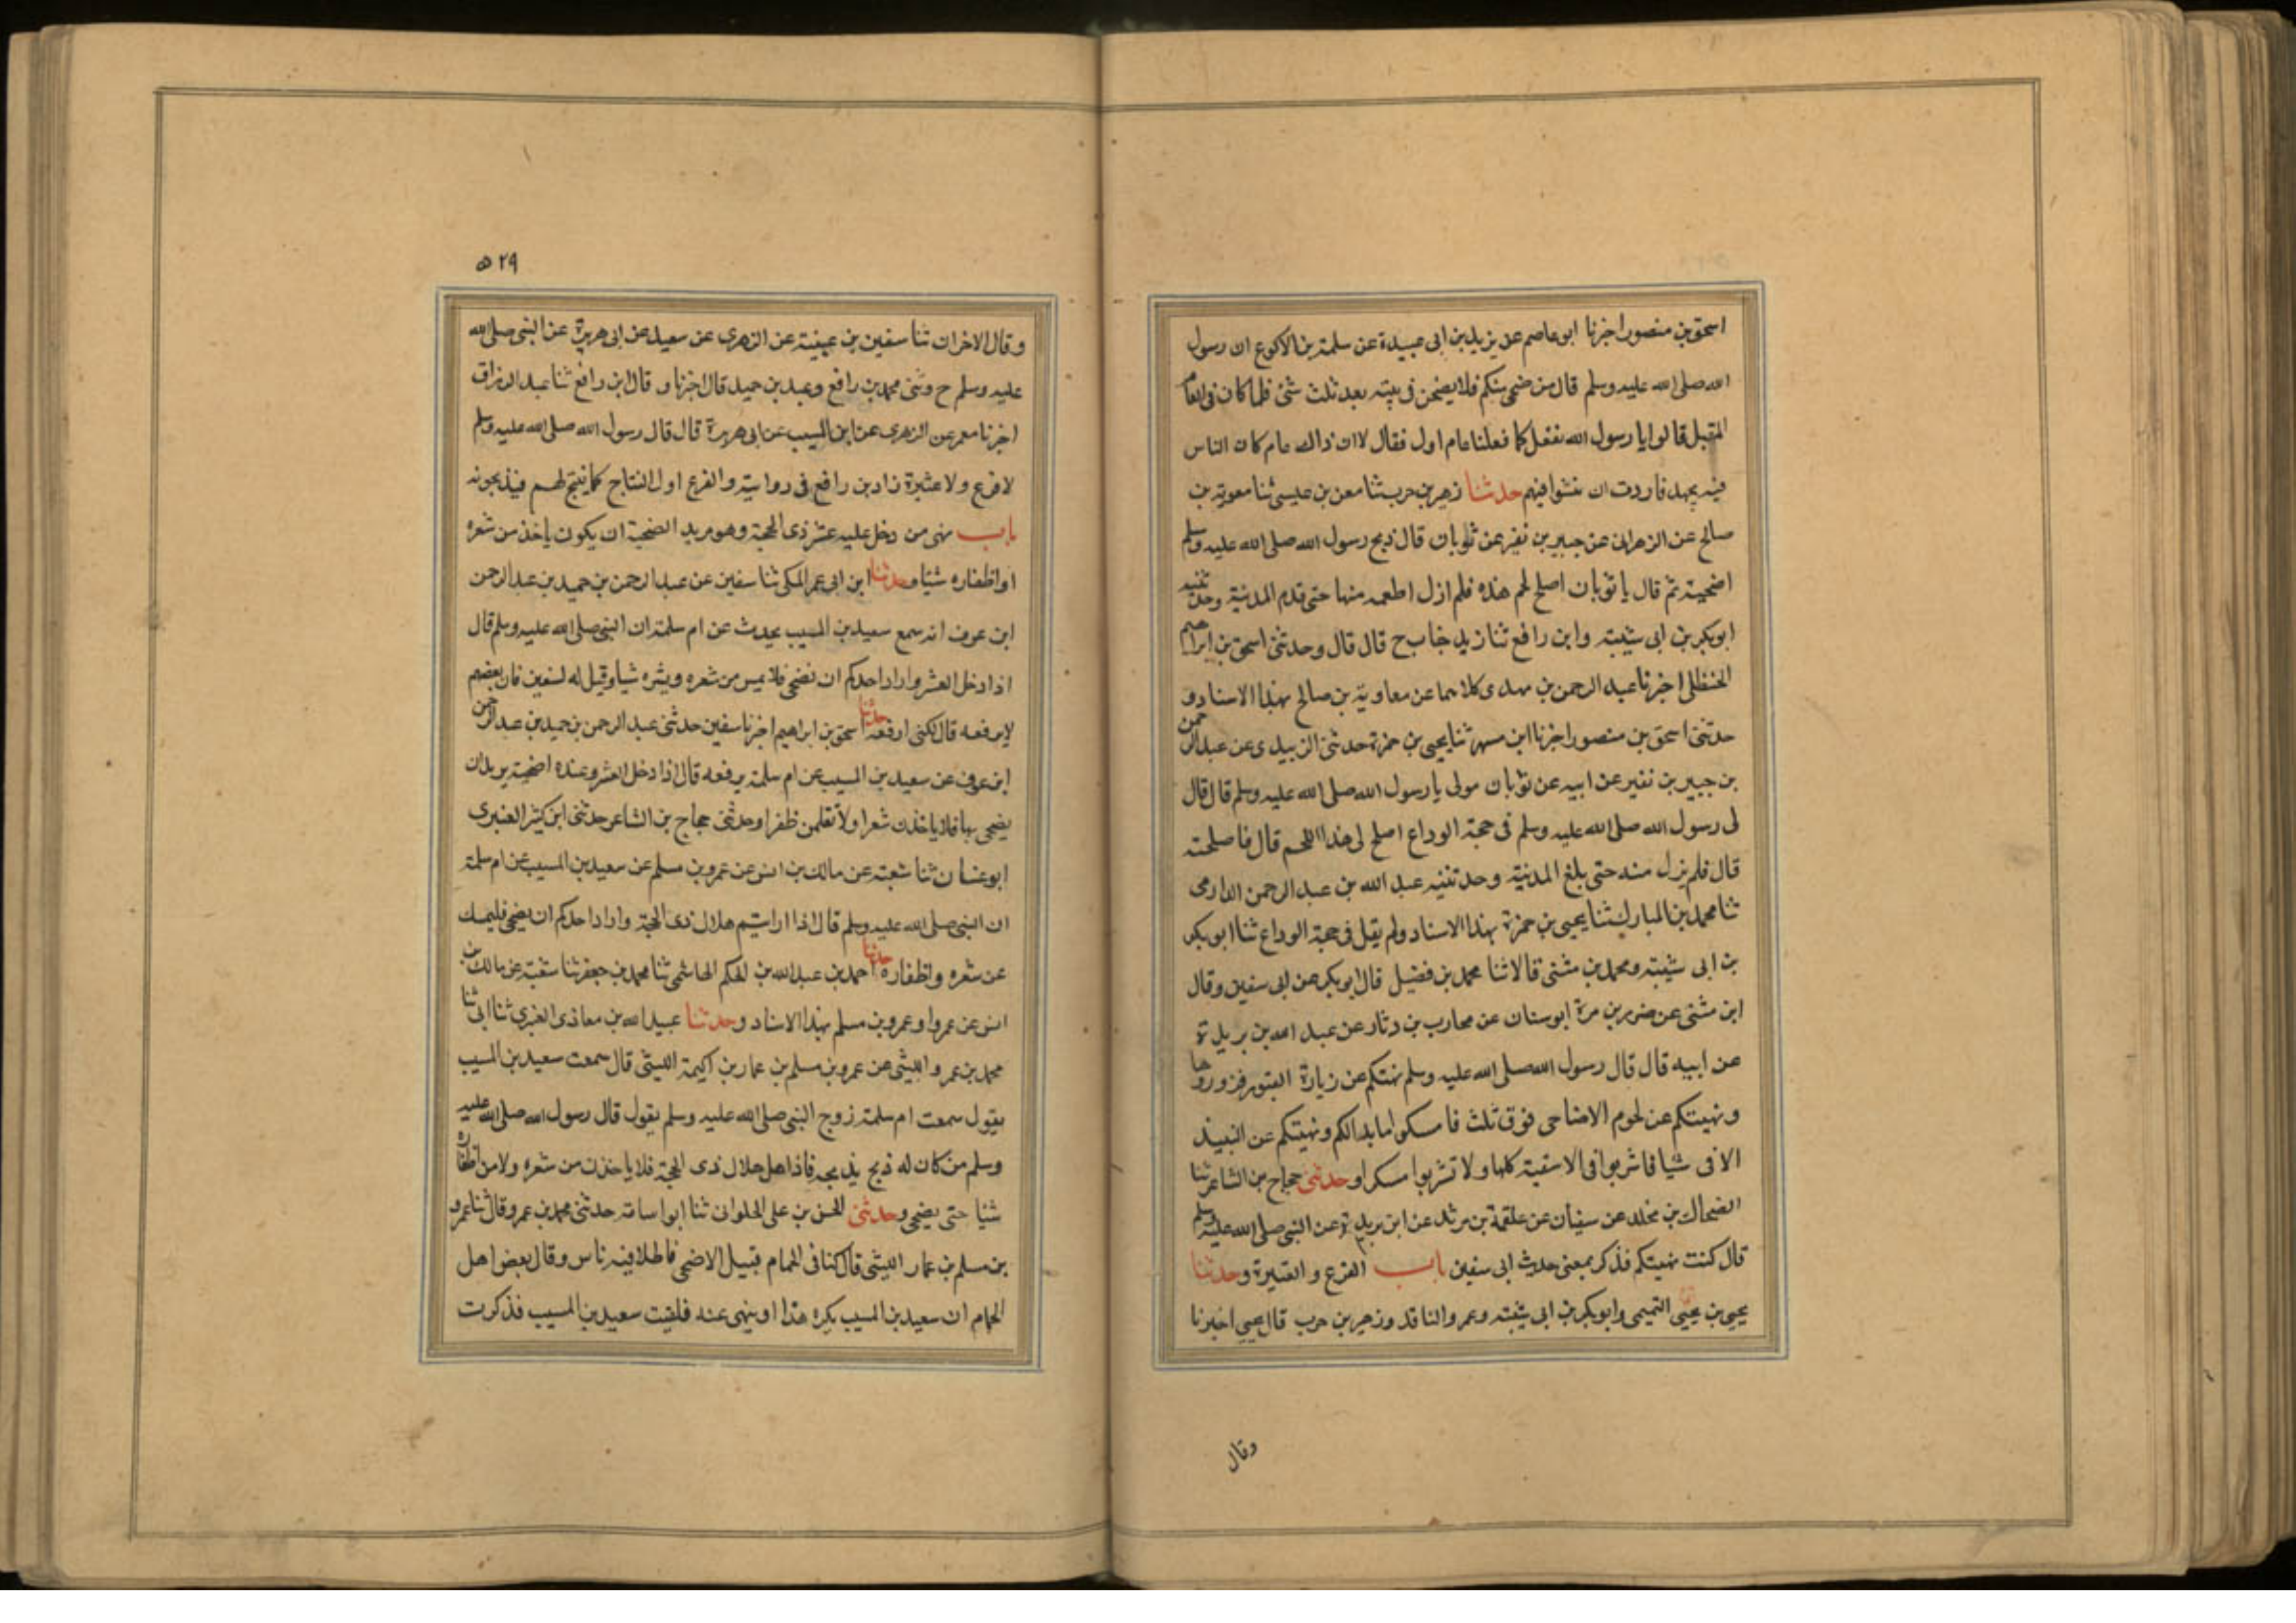 اسحق بن منصور اخبرنا ابو عاصم عن يزيد بن ابى عبيدة عن سلمة بن الاكوع ان رسول
الله صلى الله عليه وسلم قال من ضحى منكم فلا يضحن فى بيته بعد ثلث شئ فلما كان فى العام
المقبل قالوا يا رسول الله نفعل كما فعلنا عام اول فقال لا ان ذاك عام كان الناس
فيه بجهد فاردت ان تفشوا فيهم حدثنا زهير بن حرب ثنا معن بن عيسى ثنا معوية بن
صالح عن الزهرانى عن جبير بن نفير عن ثوبان قال ذبح رسول الله صلى الله عليه وسلم
اضحيته ثم قال يا ثوبان اصلح لحم هذه فلم ازل اطعمه منها حتى قدم المدنية وحدثنيه
ابوبكر بن ابى شيبة وابن رافع ثنا زيد حباب ح قال قال وحدثنى اسحق بن ابراهيم
الحنظلى اخبرنا عبد الرحمن بن مهدى كلاهما عن معاوية بن صالح بهذا الاسناد و
حدثنى اسحق بن منصور اخبرنا ابن مسهر ثنا يحيى بن حمزة حدثنى الزبيدى عن عبد الرحمن
بن جبير بن نفير عن ابيه عن ثوبان مولى يا رسول الله صلى الله عليه وسلم قال قال
لى رسول الله صلى الله عليه وسلم فى حجة الوداع اصلح لى هذا اللحم قال فاصلحته
قال فلم يزل منه حتى بلغ المدنية وحدثنيه عبد الله بن عبد الرحمن الدارمى
ثنا محمد بن المبارك ثنا يحيى بن حمزة بهذا الاسناد ولم يقل فى حجة الوداع ثنا ابوبكر
بن ابى شيبة ومحمد بن مثنى قالا ثنا محمد بن فضيل قال ابوبكر عن ابى سفين وقال
ابن مثنى عن ضرير بن مرة ابو سنان عن محارب بن دثار عن عبد الله بن بريدة
عن ابيه قال قال رسول الله صلى الله عليه وسلم نهتكم عن زيارة القبور فزوروها
ونهيتكم عن لحوم الاضاحى فوق ثلث فامسكوا ما بدالكم ونهيتكم عن النبيذ
الا فى شيا فاشربوا فى الاسقية كلها ولا تشربوا مسكرا وحدثنى حجاج بن الشاعر ثنا
الضحاك بن مخلد عن سفيان عن علقمة بن مرثد عن ابن بريدة عن النبى صلى الله عليه وسلم
قال كنت نهيتكم فذكر بمعنى حديث ابى سفين باب الفرع و العتيرة وحدثنا
يحيى بن يحيى التميمى وابوبكر بن ابى شيبة وعمرو الناقد وزهير بن حرب قال يحيى اخبرنا
وقال
٥٢٩
وقال الاخران ثنا سفين بن عيينة عن الزهرى عن سعيد عن ابى هريرة عن النبى صلى الله
عليه وسلم ح وثنى محمد بن رافع وعبد بن حميد قال اخبرنا و قال ابن رافع ثنا عبد الرزاق
اخبرنا معمر عن الزهرى عن ابن المسيب عن ابى هريرة قال قال رسول الله صلى الله عليه وسلم
لا فرع ولا عتيرة زاد بن رافع فى روايته والفرع اول النتاج كما ينتج لهم فيذبحونه
باب نهى من دخل عليه عشر ذى الحجة وهو مريد الضحية ان يكون ياخذ من شعره
او اظفاره شيا وحدثنا ابن ابى عمر المكى ثنا سفين عن عبد الرحمن بن حميد بن عبد الرحمن
ابن عوف انه سمع سعيد بن المسيب يحدث عن ام سلمة ان النبى صلى الله عليه وسلم قال
اذا دخل العشر واراد احدكم ان يضحى فلا يمس من شعره وبشره شيا وقيل له لسفين فان بعضهم
لا يرفعه قال لكنى ارفعه حدثنا اسحق بن ابراهيم اخبرنا سفين حدثنى عبد الرحمن بن حميد بن عبد الرحمن
ابن عوف عن سعيد بن المسيب عن ام سلمة يرفعه قال اذا دخل العشر وعنده اضحية يريد ان
يضحى بها فلا ياخذن شعرا ولا تقلمن ظفرا وحدثنى حجاج بن الشاعر حدثنى ابن كثير العنبرى
ابو غسان ثنا شعبة عن مالك بن انس عن عمرو بن مسلم عن سعيد بن المسيب عن ام سلمة
ان النبى صلى الله عليه وسلم قال اذا اراستم هلال ذى الحجة واراد احدكم ان يضحى فليمسك
عن شعره واظفاره حدثنا احمد بن عبد الله بن الحكم الهاشمى ثنا محمد بن جعفر ثنا شعبة عن مالك بن
انس عن عمر او عمرو بن مسلم بهذا الاسناد وحدثنا عبيد الله بن معاذى العنبرى ثنا ابى ثنا
محمد بن عمر و الليثى عن عمرو بن مسلم بن عمار بن اكيمة الليثى قال سمعت سعيد بن المسيب
يقول سمعت ام سلمة زوج النبى صلى الله عليه وسلم يقول قال رسول الله صلى الله عليه
وسلم من كان له ذبح يذبحه فاذا اهل هلال ذى الحجة فلا ياخذن من شعره ولا من اظفاره
شيا حتى يضحى وحدثنى الحسن بن على الحلوانى ثنا ابو اسامة حدثنى محمد بن عمرو قال ثنا عمرو
بن مسلم بن عمار الليثى قال كنا فى الحمام قبيل الاضحى فاطلا فيه ناس وقال بعض اهل
الحمام ان سعيد بن المسيب يكره هذا او ينهى عنه فلقيت سعيد بن المسيب فذكرت